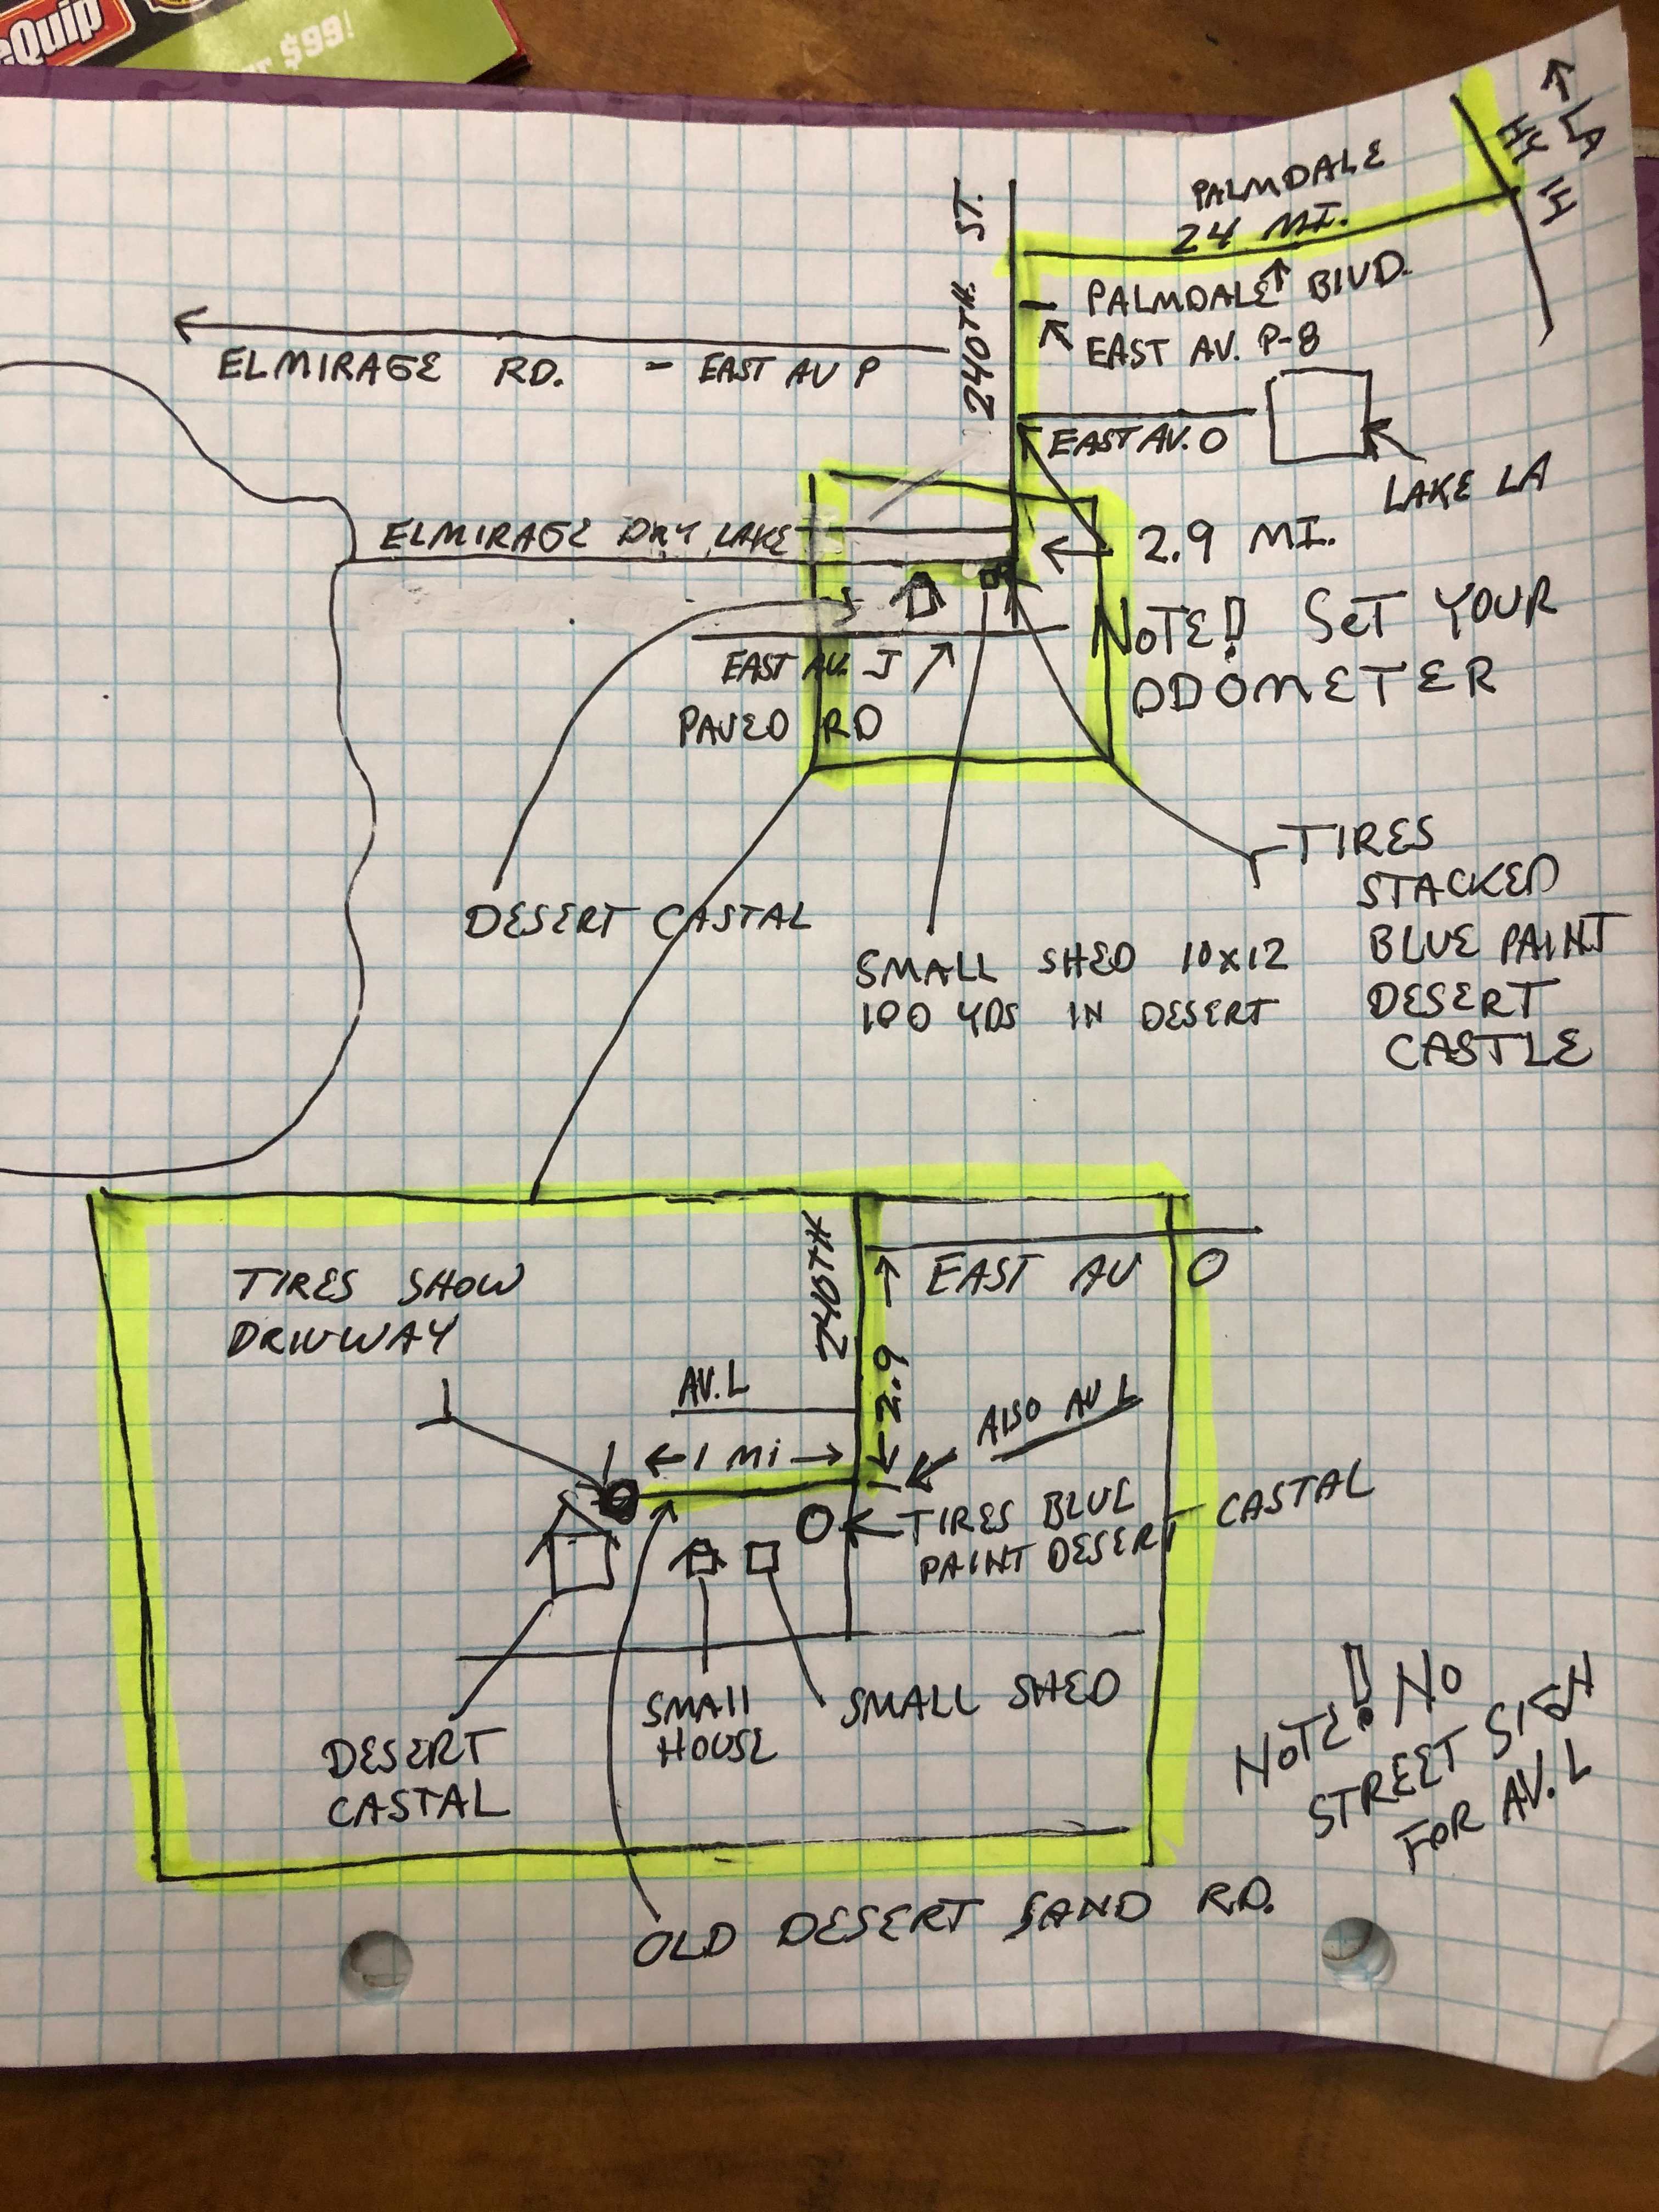 eQuip
$99!
LA
PALMDALE
24 MI.
240TH. ST.
PALMDALE BlVD.
EAST AV. P-8
ELMIRAGE RD. - EAST AV P
EAST AV. O
LAKE LA
ELMIRAGE DRY LAKE
2.9 MI.
NOTE! SET YOUR
ODOMETER
EAST AV. J
PAVED RD
TIRES
STACKED
BLUE PAINT
DESERT
CASTLE
DESERT CASTAL
SMALL SHED 10x12
100 YDS IN DESERT
240TH
EAST AV O
TIRES SHOW
DRIVWAY
2.9
AV. L
AlSO AV L
1 Mi
TIRES BLUE
PAINT DESERT CASTAL
SMAll
HOUSE
SMALL SHED
DESERT
CASTAL
NOTE! NO
STREET SIGN
FOR AV. L
OLD DESERT SAND RD.